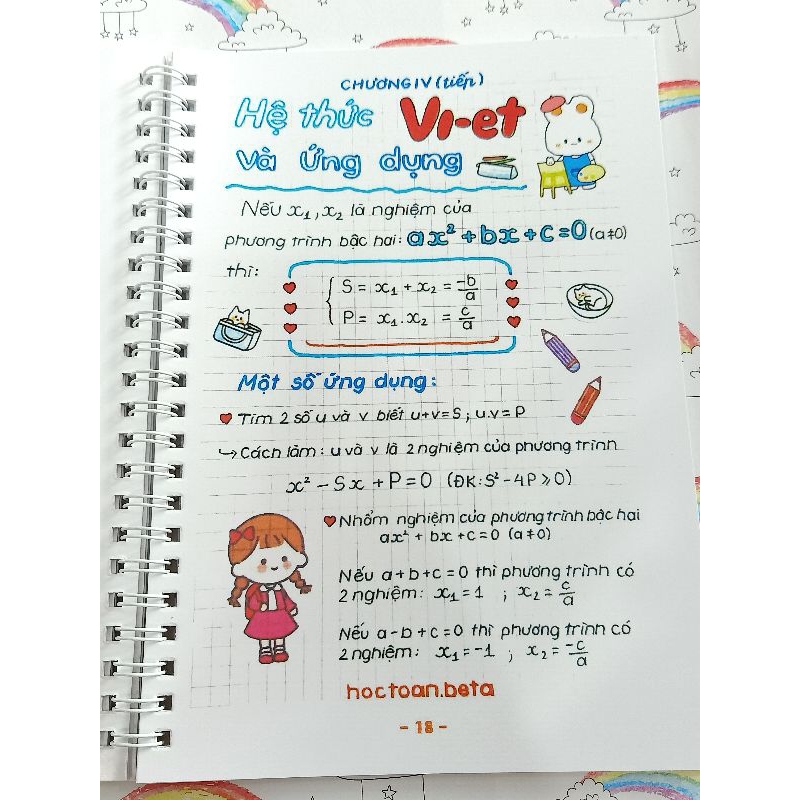 CHƯƠNG IV (tiếp)
Hệ thức Vi-et
Và Ứng dụng
Nếu x₁, x₂ là nghiệm của
phương trình bậc hai: ax² + bx + c = 0 (a ≠ 0)
thì:
S = x₁ + x₂ = -b/a
P = x₁ . x₂ = c/a
Một số ứng dụng:
Tìm 2 số u và v biết u+v=S ; u.v= P
↪ Cách làm: u và v là 2 nghiệm của phương trình
x² - Sx + P = 0 (ĐK: S² - 4P ⩾ 0)
Nhẩm nghiệm của phương trình bậc hai
ax² + bx + c = 0 (a ≠ 0)
Nếu a + b + c = 0 thì phương trình có
2 nghiệm: x₁ = 1 ; x₂ = c/a
Nếu a - b + c = 0 thì phương trình có
2 nghiệm: x₁ = -1 ; x₂ = -c/a
hoctoan.beta
- 18 -